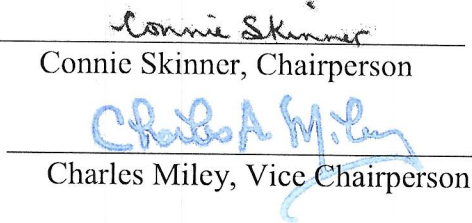 Connie Skinner
Connie Skinner, Chairperson
Charles A Miley
Charles Miley, Vice Chairperson